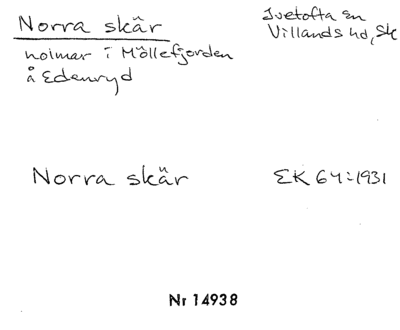 Norra skär
Ivetofta sn
Villands hd, Sk
holmar i Möllefjorden
å Edenryd
Norra skär
EK 64:1931
Nr 14938